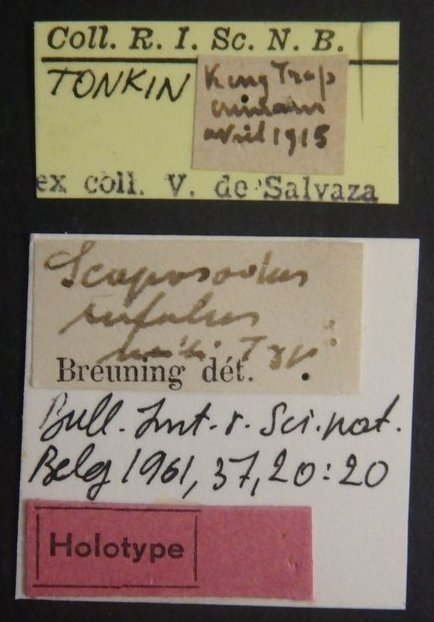 Coll. R. I. Sc. N. B.
TONKIN
Keng Trap
avril 1915
ex coll. V. de Salvaza
rufulus
mihi Typ
Breuning dét.
Bull. Inst. r. Sci. nat.
Belg 1961, 37, 20:20
Holotype